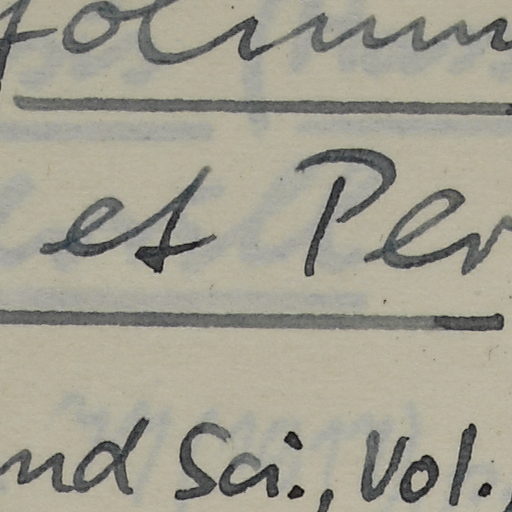 folium
et Per
nd Sci., Vol.,